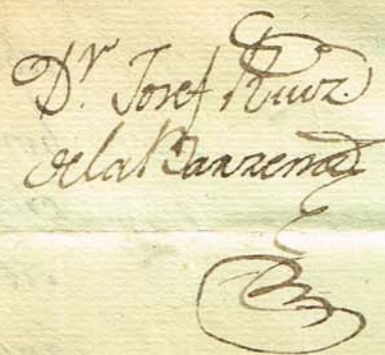 Dr. Josef Ruiz
de la Barzena